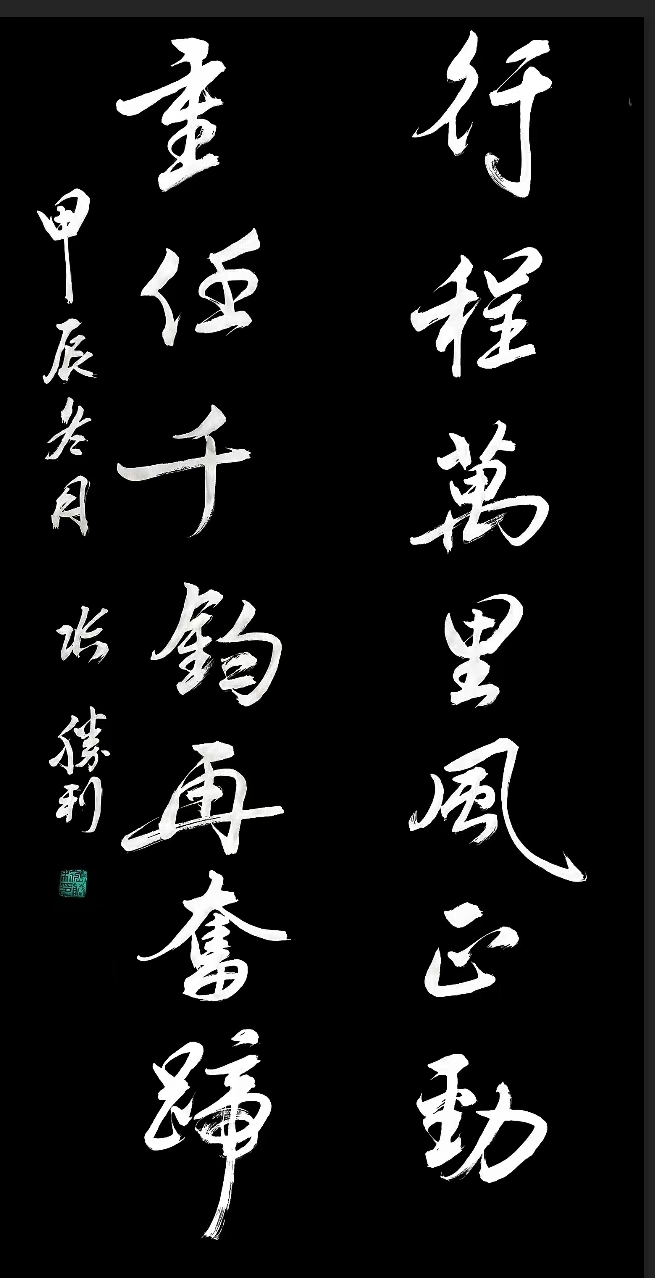 行程萬里風正勁
重任千鈞再奮蹄
甲辰冬月 張勝利